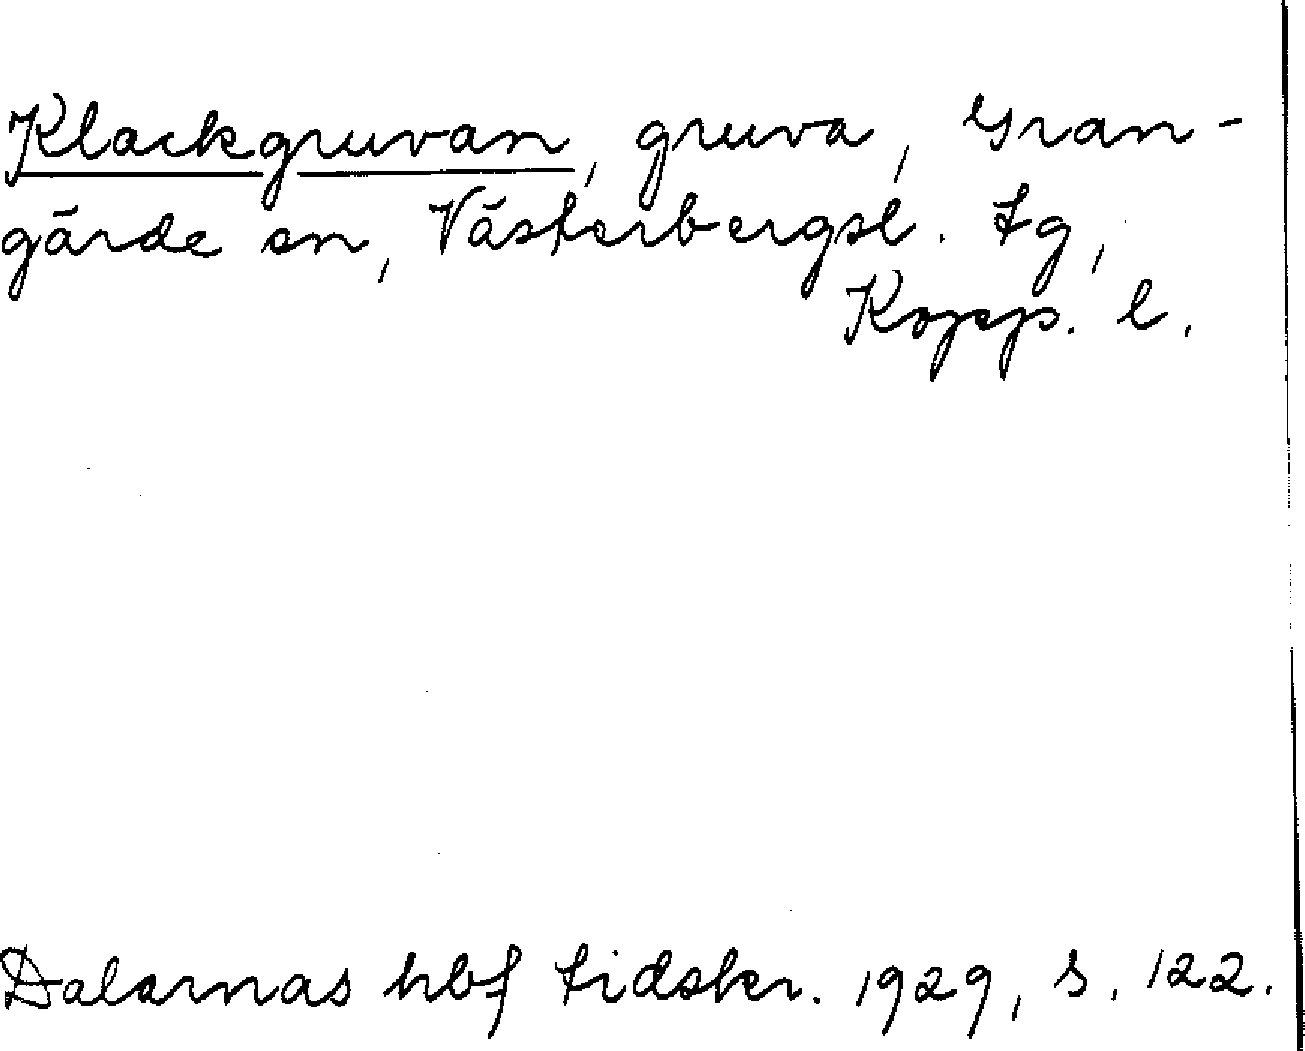 Klackgruvan, gruva, Gran-
gärde sn, Västerbergsl. tg,
Kopp. l.
Dalarnas hbf tidskr. 1929, s. 122.